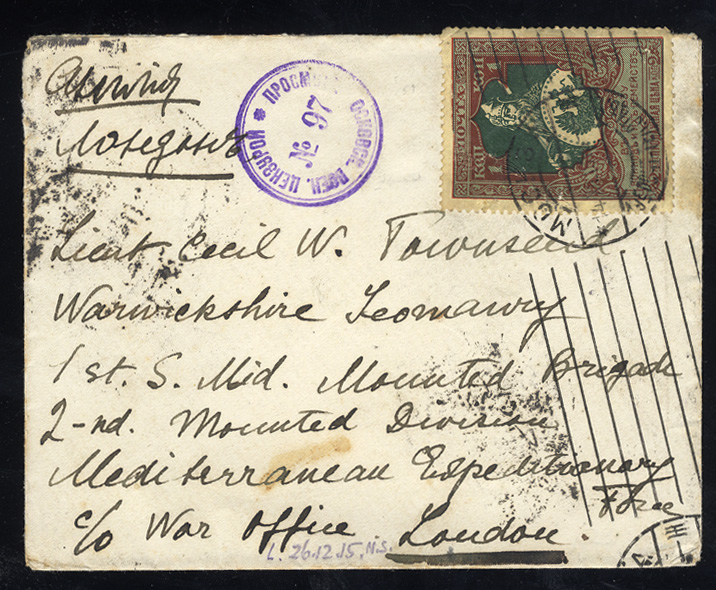 Англія
Лондонъ
ПРОСМОТР. МОСКОВСК. ВОЕН. ЦЕНЗУРОЙ
№ 97
Lieut Cecil W. Townsend
Warwickshire Yeomanry
1st. S. Mid. Mounted Brigade
2-nd. Mounted Division
Mediterranean Expeditionary
Force
c/o War Office London
L. 26.12.15. N.S.